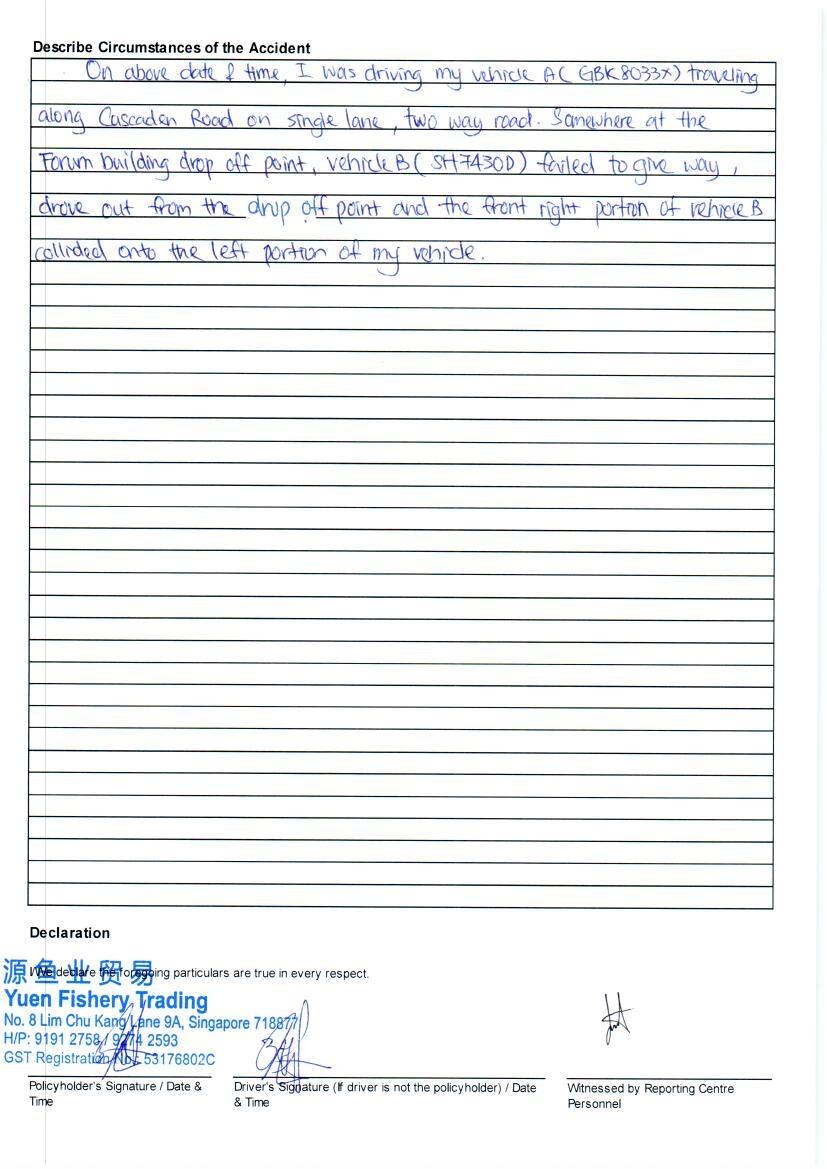 Describe Circumstances of the Accident
On above date & time, I was driving my vehicle A ( GBK8033X) traveling
along Cascaden Road on single lane, two way road. Somewhere at the
Forum building drop off point, vehicle B ( SH7430D) failed to give way,
drove out from the drop off point and the front right portion of vehicle B
collided onto the left portion of my vehicle.
Declaration
I/We declare the foregoing particulars are true in every respect.
源鱼业贸易
Yuen Fishery Trading
No. 8 Lim Chu Kang Lane 9A, Singapore 718877
H/P: 9191 2758 / 9274 2593
GST Registration No.: 53176802C
Policyholder's Signature / Date & Time
Driver's Signature (If driver is not the policyholder) / Date & Time
Witnessed by Reporting Centre Personnel